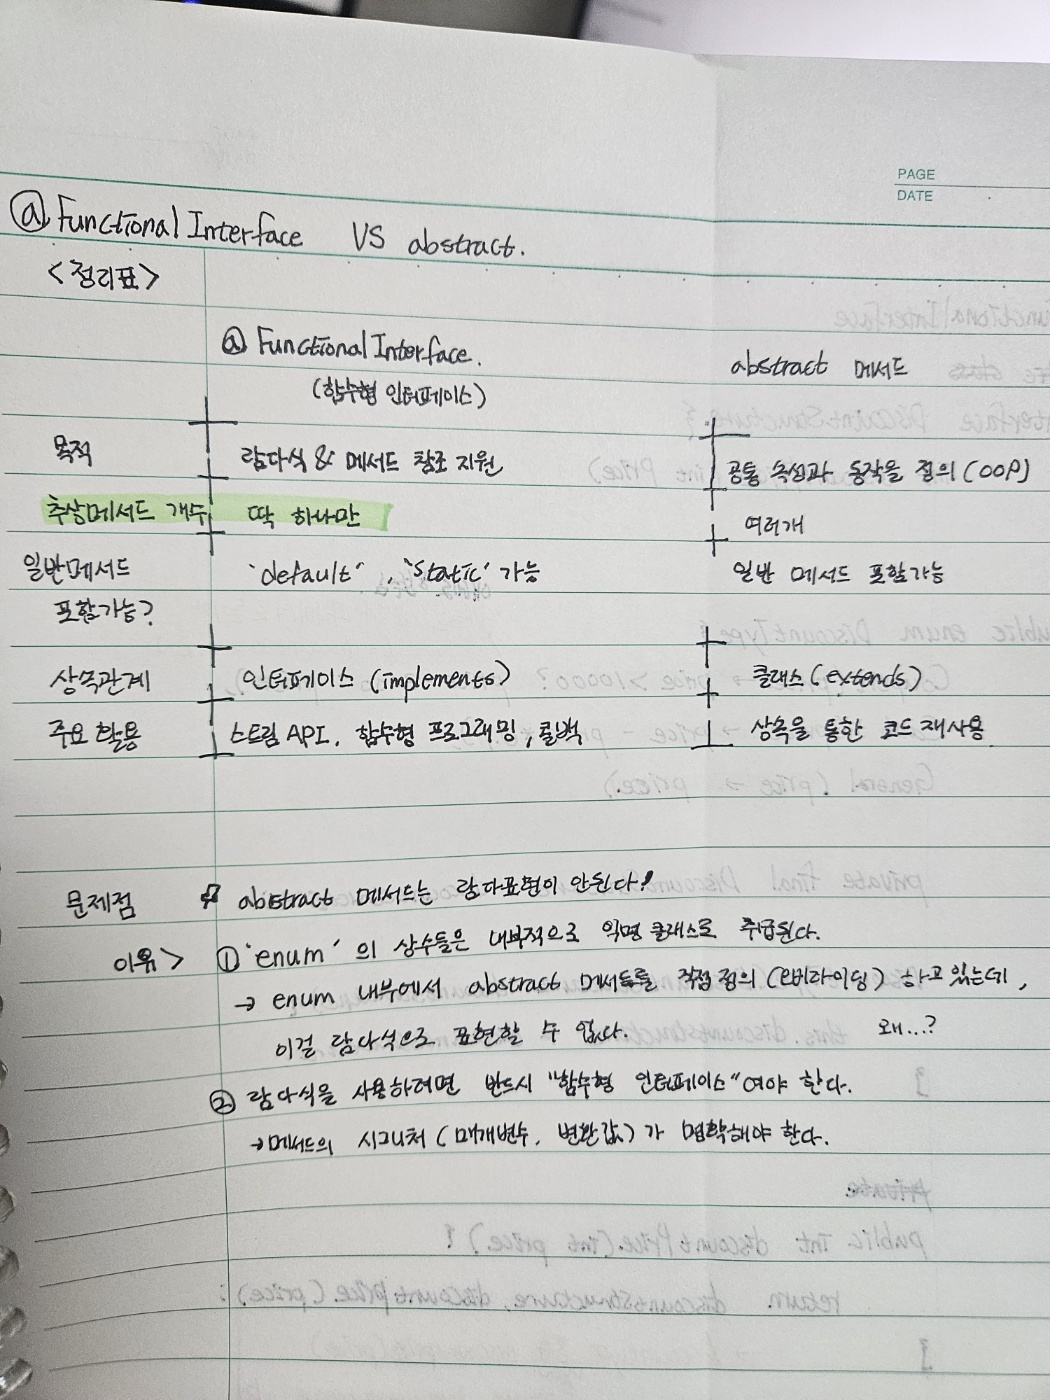 PAGE
DATE
@FunctionalInterface VS abstract.
<정리표>
@FunctionalInterface. abstract 메서드
(함수형 인터페이스)
목적 람다식 & 메서드 참조 지원 공통 속성과 동작을 정의 (OOP)
추상메서드 개수 딱 하나만 여러개
일반메서드 `default`, `static` 가능 일반 메서드 포함가능
포함가능?
상속관계 인터페이스 (implements) 클래스 (extends)
주요 활용 스트림 API, 함수형 프로그래밍, 콜백 상속을 통한 코드 재사용
문제점 abstract 메서드는 람다표현이 안된다!
이유> ① 'enum' 의 상수들은 내부적으로 익명 클래스로 취급된다.
→ enum 내부에서 abstract 메서드를 직접 정의 (오버라이딩) 하고 있는데,
이걸 람다식으로 표현할 수 없다. 왜...?
② 람다식을 사용하려면 반드시 "함수형 인터페이스"여야 한다.
→ 메서드의 시그니처 (매개변수, 반환값) 가 명확해야 한다.